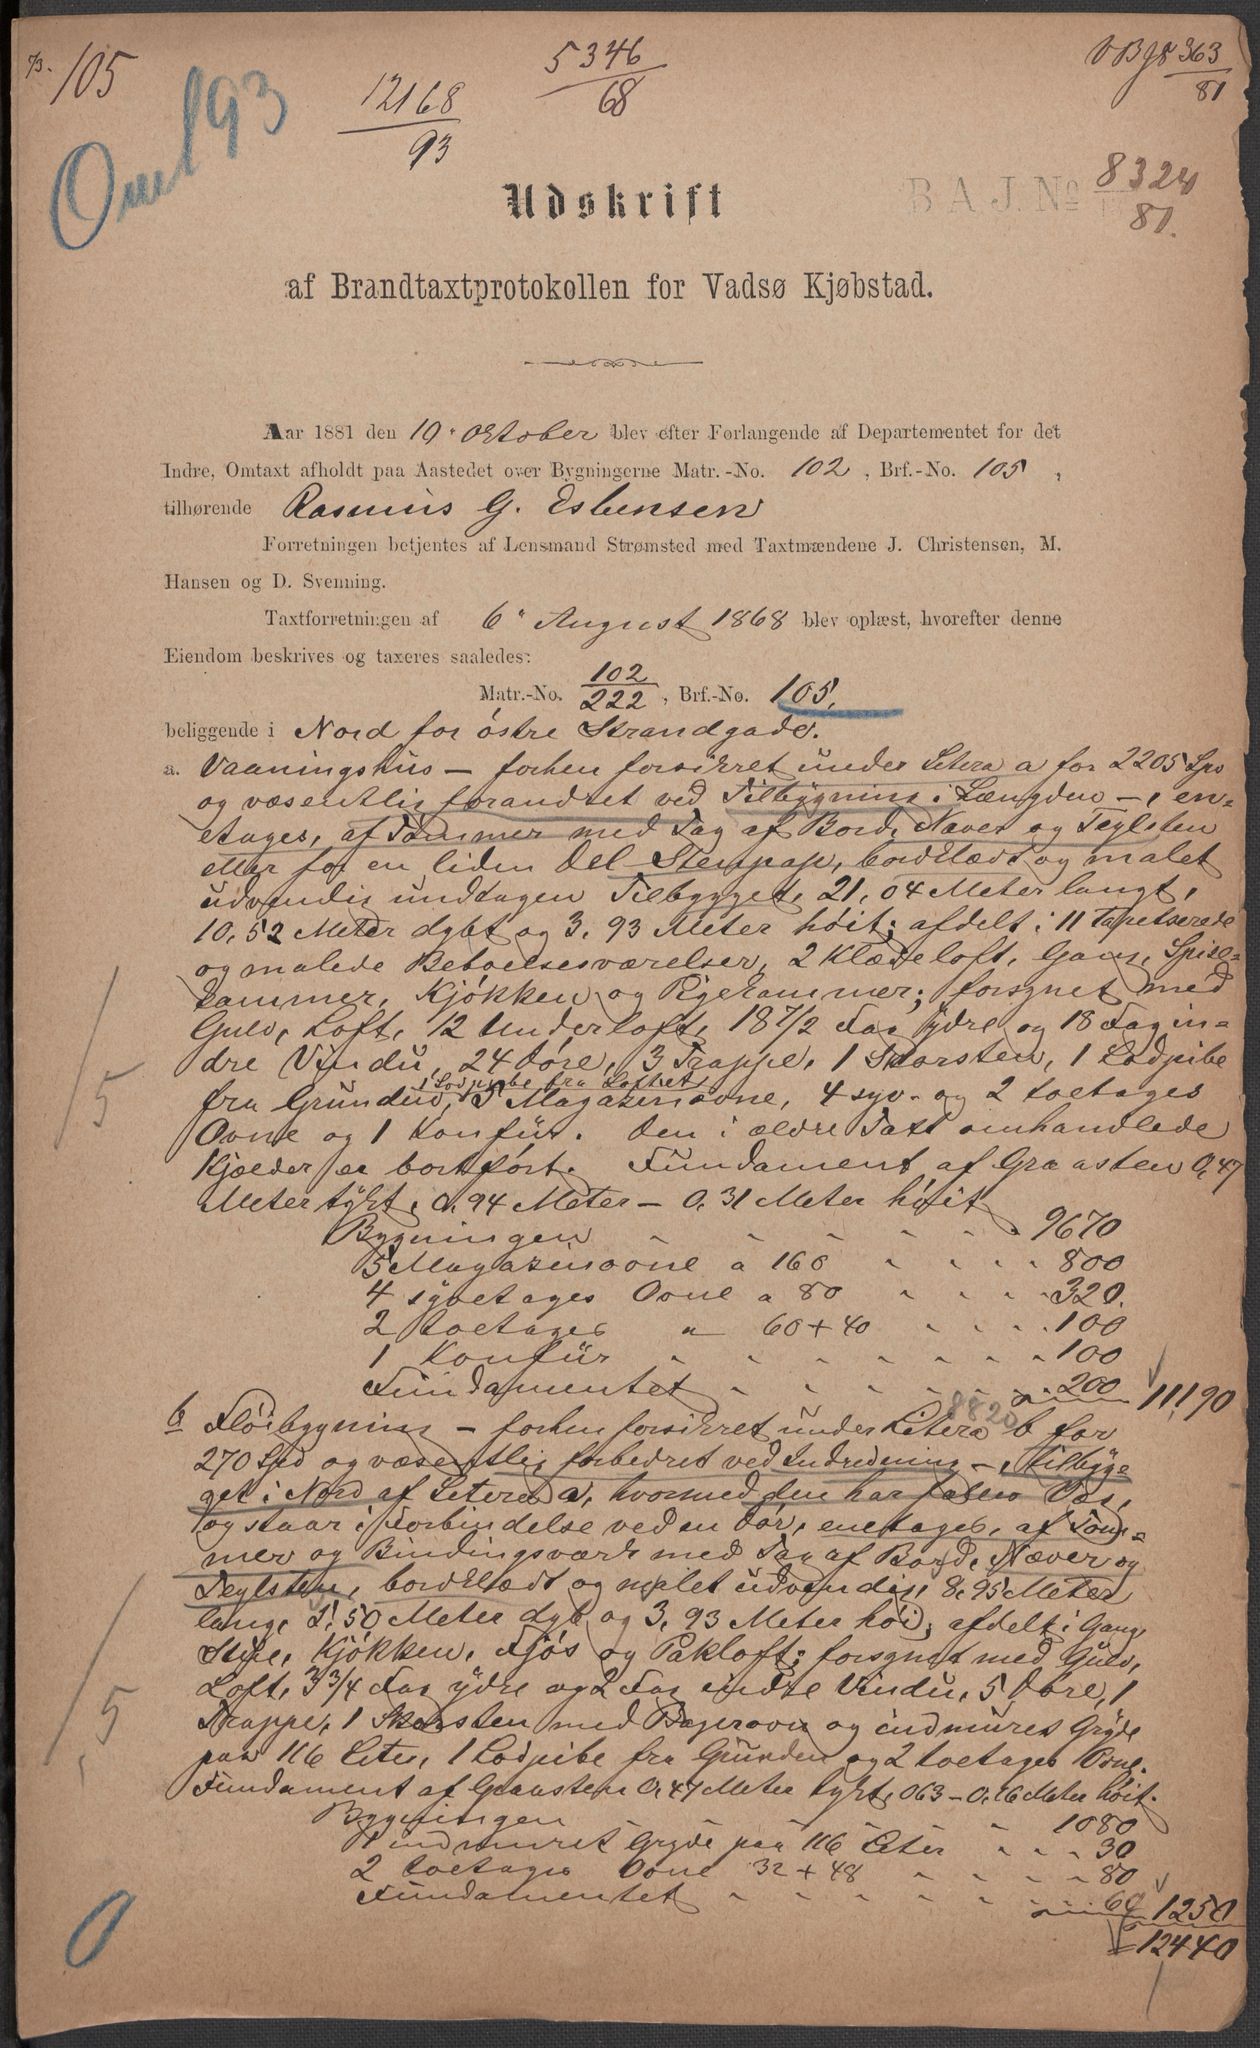 73. 105
Omt 93
12168
93
5346
68
V B J. No 363
81
B A J. No 8324
81.
Udskrift
af Brandtaxtprotokollen for Vadsø Kjøbstad.
Aar 1881 den 19. Oktober blev efter Forlangende af Departementet for det
Indre, Omtaxt afholdt paa Aastedet over Bygningerne Matr.-No. 102, Brf.-No. 105,
tilhørende Rasmus G. Esbensen
Forretningen betjentes af Lensmand Strømsted med Taxtmændene J. Christensen, M.
Hansen og D. Svenning.
Taxtforretningen af 6. August 1868 blev oplæst, hvorefter denne
Eiendom beskrives og taxeres saaledes:
Matr.-No. 102/222, Brf.-No. 105.
beliggende i Nord for østre Strandgade.
a. Vaaningshus – forhen forsikret under Litera a for 2205 Spd
og væsentlig forandret ved Tilbygning i Længden –, en-
etages, af Tømmer med Tag af Bord, Næver og Teglsten
eller for en liden Del Stenpap, bordklædt og malet
udvendig undtagen Tilbygget, 21,04 Meter langt,
10,52 Meter dybt og 3,93 Meter høit; afdelt i 11 tapetserede
og malede Beboelsesværelser, 2 Klædeloft, Gang, Spise-
kammer, Kjøkken og Pigekammer; forsynet med
Gulv, Loft, 12 Underloft, 18 7/2 Fag ydre og 18 Fag in-
dre Vindu, 24 Døre, 3 Trappe, 1 Skorsten, 1 Lodpibe
1 Lodpibe fra Loftet,
fra Grunden, 5 Magasinovne, 4 syv- og 2 toetages
Ovne og 1 Komfür. Den i ældre Taxt omhandlede
Kjælder er bortført. Fundament af Graasten 0,47
Meter tykt, 0,94 Meter – 0,31 Meter høit
Bygningen " " " " " 9670
5 Magasinovne a 160 " " " 800
4 syvetages Ovne a 80 " " " 320.
2 toetages " 60+40 " " " 100
1 Komfür " " " " " " 100
Fundamentet " " " " " 200 11,190
8820
b Fløibygning – forhen forsikret under Litera b for
270 Spd og væsentlig forbedret ved Indredning –, tilbyg-
get i Nord af Litera a, hvormed den har fælles
og staar i Forbindelse ved en Dør, enetages, af Tøm-
mer og Bindingsværk med Tag af Bord, Næver og
Teglsten, bordklædt og malet udvendig, 8,95 Meter
lang, 5,50 Meter dyb og 3,93 Meter høi; afdelt i Gang,
Stue, Kjøkken, Fjøs og Pakloft; forsynet med Gulv,
Loft, 3 3/4 Fag ydre og 2 Fag indre Vindu, 5 Døre, 1
Trappe, 1 Skorsten med Bagerovn og indmuret Gryde
paa 116 Liter, 1 Lodpibe fra Grunden og 2 toetages Ovne.
Fundament af Graasten 0,47 Meter tykt, 0,63 – 0,16 Meter høit.
Bygningen " " " " " 1080
1 indmuret Gryde paa 116 Liter " " " 30
2 toetages Ovne 32+48 " " " " 80
Fundamentet " " " " " 60 1250
12440
/5
/5
0